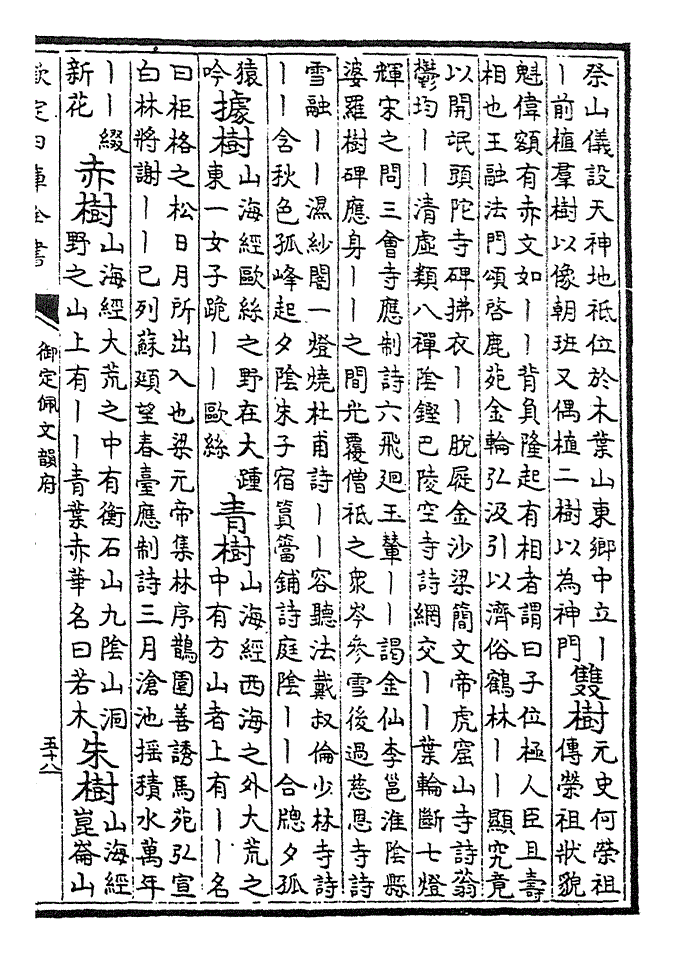 祭山儀設天神地祇位於木葉山東鄉中立丨
丨前植羣樹以像朝班又偶植二樹以為神門
雙樹
元史何榮祖
傳榮祖狀貌
魁偉額有赤文如丨丨背負隆起有相者謂曰子位極人臣且壽
相也王融法門頌啓鹿苑金輪弘汲引以濟俗鶴林丨丨顯究竟
以開氓頭陀寺碑拂衣丨丨脫屣金沙梁簡文帝虎窟山寺詩蓊
鬱均丨丨清虛類八禪陰鏗巴陵空寺詩網交丨丨葉輪斷七燈
輝宋之問三會寺應制詩六飛迴玉輦丨丨謁金仙李邕淮陰縣
婆羅樹碑應身丨丨之間光覆僧祇之衆岑參雪後過慈恩寺詩
雪融丨丨濕紗閣一燈燒杜甫詩丨丨容聽法戴叔倫少林寺詩
丨丨含秋色孤峰起夕陰朱子宿篔簹鋪詩庭陰丨丨合牕夕孤
猿
吟
據樹
山海經歐絲之野在大踵
東一女子跪丨丨歐絲
青樹
山海經西海之外大荒之
中有方山者上有丨丨名
曰柜格之松日月所出入也梁元帝集林序鵲園善誘馬苑弘宣
白林將謝丨丨已列蘇頲望春臺應制詩三月滄池摇積水萬年
丨丨綴
新花
赤樹
山海經大荒之中有衡石山九陰山洞
野之山上有丨丨青葉赤華名曰若木
朱樹
山海經
崑崙山
欽定四庫全書
御定佩文韻府
五十八